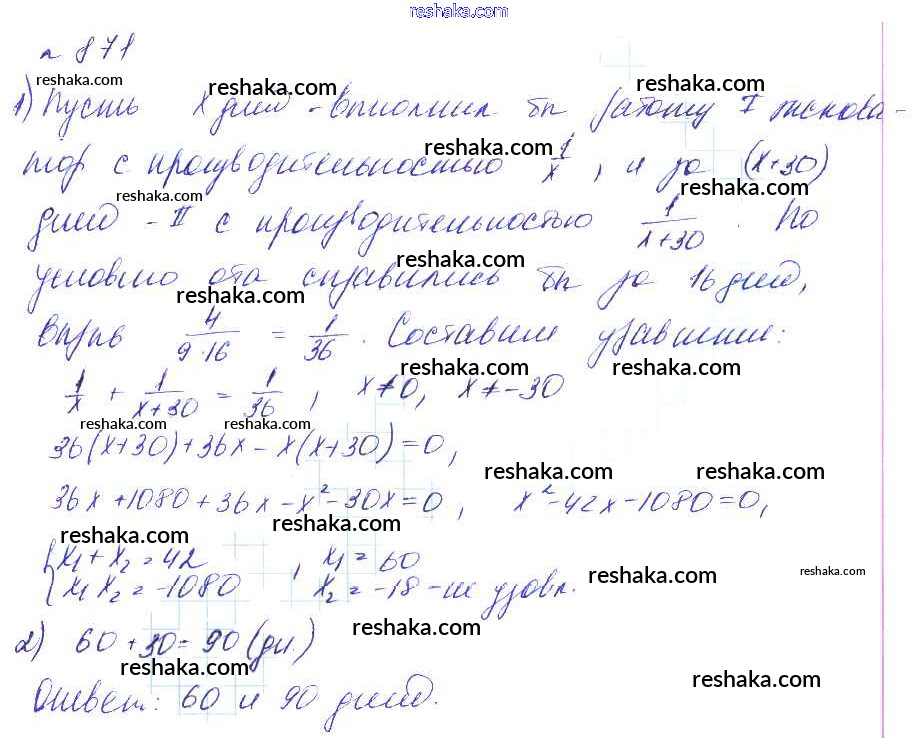 reshaka.com
n 871
reshaka.com reshaka.com reshaka.com
1) Пусть x дней - выполнил бы работу I экскова-
reshaka.com reshaka.com
тор с производительностью 1/x, и за (x+30)
reshaka.com reshaka.com
дней - II с производительностью 1/x+30. По
reshaka.com
условию оба справились бы за 16 дней,
reshaka.com reshaka.com
вырыв 4/9·16 = 1/36. Составим уравнение:
reshaka.com reshaka.com
1/x + 1/x+30 = 1/36, x≠0, x≠-30
reshaka.com reshaka.com
36(x+30)+36x-x(x+30)=0,
reshaka.com reshaka.com
36x+1080+36x-x²-30x=0, x²-42x-1080=0,
reshaka.com reshaka.com
{x₁+x₂=42, x₁=60
{x₁x₂=-1080 x₂=-18-не удовл.
reshaka.com reshaka.com
2) 60+30=90(дн.)
reshaka.com
reshaka.com reshaka.com
Ответ: 60 и 90 дней.